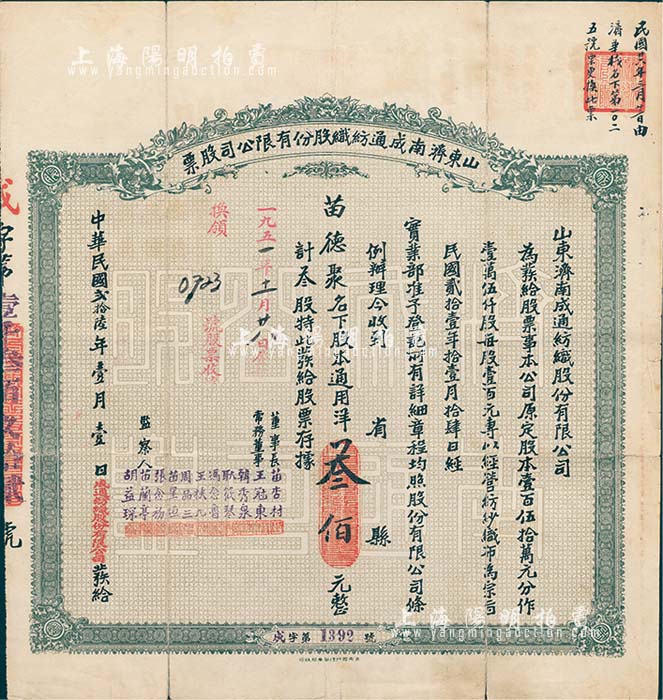 上海陽明拍賣
www.yangmingauction.com
民國廿六年二月廿日由
濟車棧名下第〇二
五號票更換此票
山東濟南成通紡織股份有限公司股票
山東濟南成通紡織股份有限公司
為發給股票事本公司原定股本壹百伍拾萬元分作
壹萬伍仟股每股壹百元專以經營紡紗織布為宗旨
民國貳拾壹年拾壹月拾肆日經
實業部准予登記所有詳細章程均照股份有限公司條
例辦理今收到
省
縣
苗德聚名下股本通用洋叁佰元整
計叁股持此發給股票存據
一九五一年十一月廿
換領
0723
號股票
董事長 苗杏村
常務董事 王冠東
韓秀泉
耿筱琴
馮念魯
王扶九
周品三
苗星垣
張念劬
監察人 苗蘭亭
胡益琛
中華民國貳拾陸年壹月壹日
成通紡織股份有限公司
發給
成字第
號
成字第1392號
上海陽明拍賣
www.yangmingauction.com